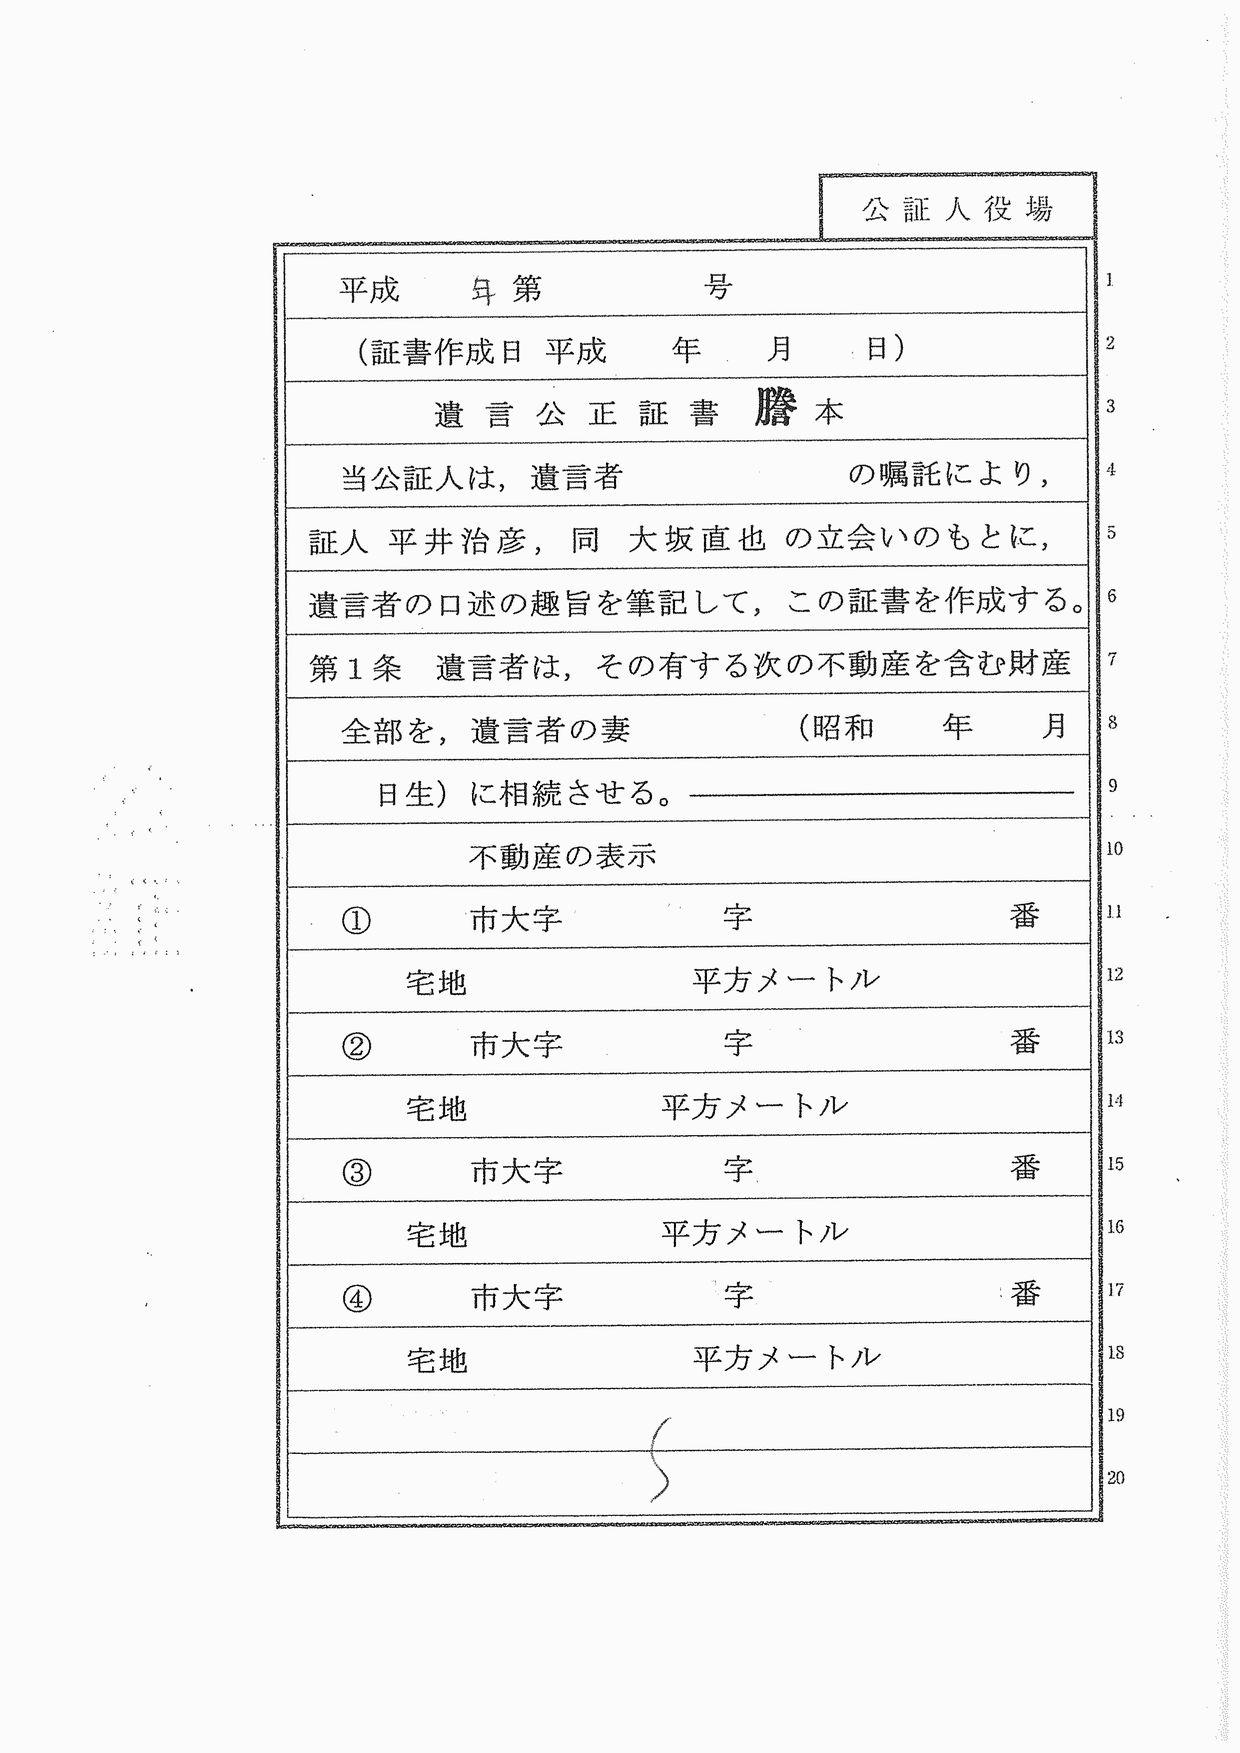 公証人役場
平成 年 第 号 1
（証書作成日 平成 年 月 日） 2
遺言公正証書 謄本 3
当公証人は，遺言者 の嘱託により， 4
証人 平井治彦，同 大坂直也 の立会いのもとに， 5
遺言者の口述の趣旨を筆記して，この証書を作成する。 6
第１条 遺言者は，その有する次の不動産を含む財産 7
全部を，遺言者の妻 （昭和 年 月 8
日生）に相続させる。 9
不動産の表示 10
① 市大字 字 番 11
宅地 平方メートル 12
② 市大字 字 番 13
宅地 平方メートル 14
③ 市大字 字 番 15
宅地 平方メートル 16
④ 市大字 字 番 17
宅地 平方メートル 18
19
20